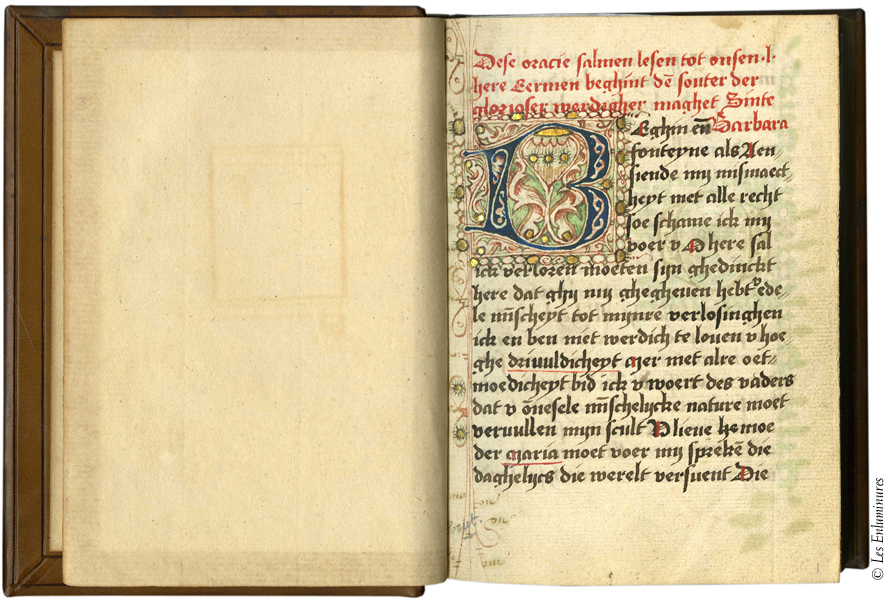 Dese oracie salmen lesen tot onsen .l.
here Eermen beghint dē souter der
glorioser werdegher maghet Sinte
Barbara
BEghin eñ
fonteyne als Aen-
siende mij mismaect-
heyt met alle recht
soe schame ick mij
voer v O here sal
ick verloren moeten sijn ghedinckt
here dat ghij mij ghegheuen hebt v ede-
le mīscheyt tot mijnre verlosinghen
ick en ben niet werdich te louen v hoe-
ghe driuuldicheyt Mer met alre oet-
moedicheyt bid ick v woert des vaders
dat v ōnesele mīschelycke nature moet
veruullen mijn scult O lieue moe
der Maria moet voer mij sprekē die
daghelijcs die werelt versuent Die
© Les Enluminures